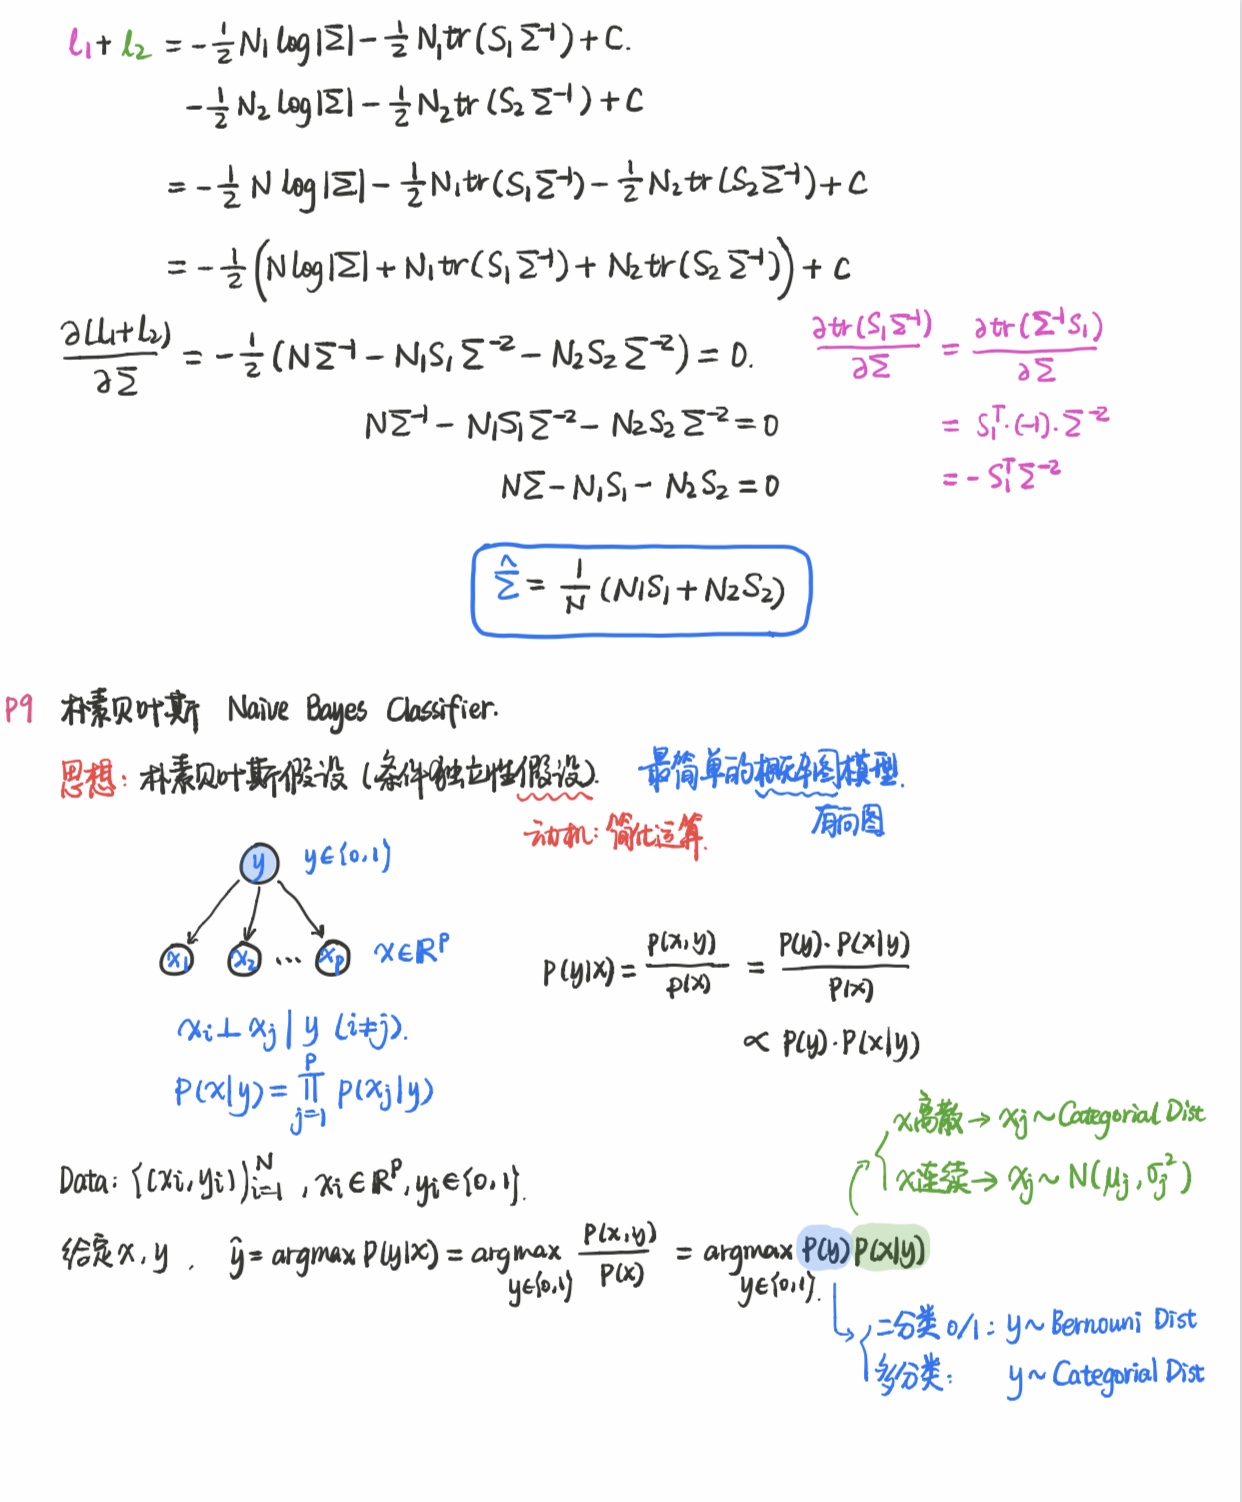 l₁+l₂ = -½ N₁ log|Σ| - ½ N₁ tr(S₁Σ⁻¹) + C.
-½ N₂ log|Σ| - ½ N₂ tr(S₂Σ⁻¹) + C
= -½ N log|Σ| - ½ N₁ tr(S₁Σ⁻¹) - ½ N₂ tr(S₂Σ⁻¹) + C
= -½ (N log|Σ| + N₁ tr(S₁Σ⁻¹) + N₂ tr(S₂Σ⁻¹)) + C
∂(l₁+l₂)/∂Σ = -½ (NΣ⁻¹ - N₁S₁Σ⁻² - N₂S₂Σ⁻²) = 0.
∂tr(S₁Σ⁻¹)/∂Σ = ∂tr(Σ⁻¹S₁)/∂Σ
NΣ⁻¹ - N₁S₁Σ⁻² - N₂S₂Σ⁻² = 0
= S₁ᵀ·(-1)·Σ⁻²
NΣ - N₁S₁ - N₂S₂ = 0
= -S₁ᵀΣ⁻²
Σ̂ = 1/N (N₁S₁ + N₂S₂)
P9 朴素贝叶斯 Naive Bayes Classifier.
思想: 朴素贝叶斯假设 (条件独立性假设). 最简单的概率图模型.
动机: 简化运算.
有向图
y y∈{0,1}
x₁ x₂ ... xₚ x∈ℝᵖ
P(y|x) = P(x,y)/P(x) = P(y)·P(x|y)/P(x)
xᵢ⊥xⱼ|y (i≠j).
∝ P(y)·P(x|y)
P(x|y) = ∏ⱼ₌₁ᵖ P(xⱼ|y)
x离散→ xⱼ ~ Categorial Dist
x连续→ xⱼ ~ N(μⱼ, σⱼ²)
Data: {(xᵢ,yᵢ)}ᵢ₌₁ᴺ, xᵢ∈ℝᵖ, yᵢ∈{0,1}.
给定x, y . ŷ = argmax P(y|x) = argmax_{y∈{0,1}} P(x,y)/P(x) = argmax_{y∈{0,1}}. P(y) P(x|y)
二分类 0/1: y ~ Bernouni Dist
多分类: y ~ Categorial Dist